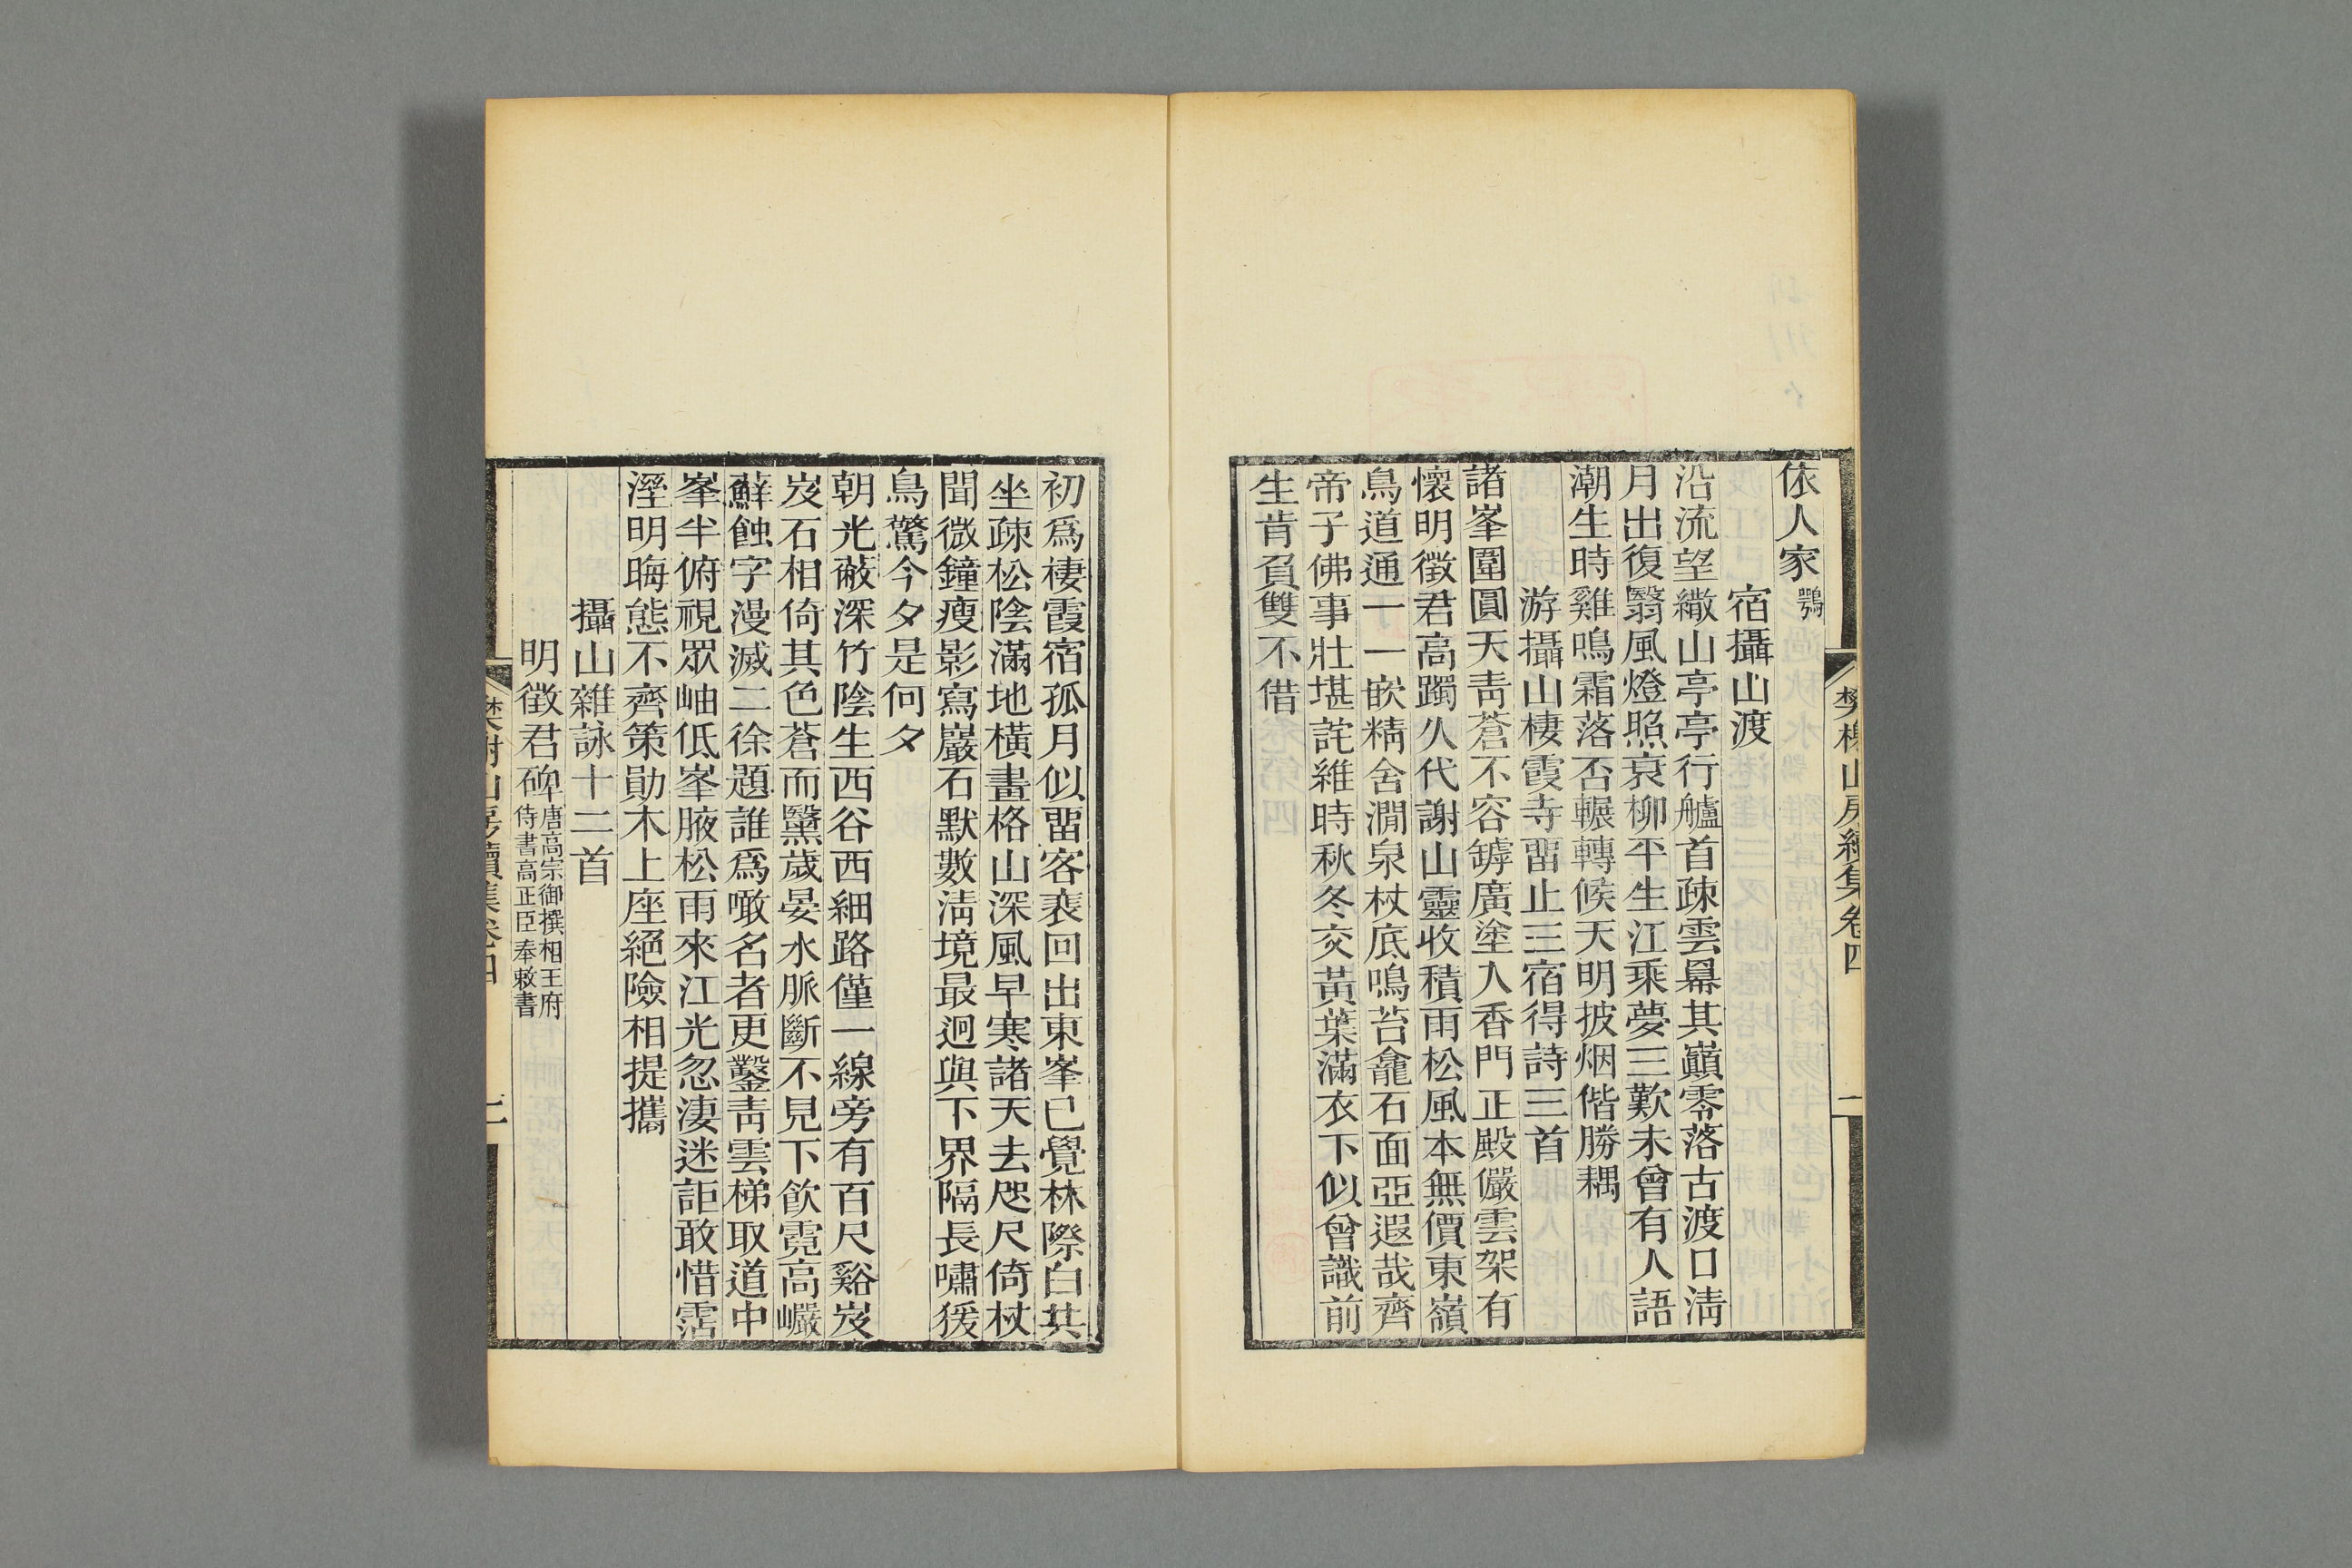 樊榭山房續集卷四
依人家鶚
宿攝山渡
沿流望繖山亭亭行艫首疎雲羃其巔零落古渡口淸
月出復翳風燈照衰柳平生江乘夢三歎未曾有人語
潮生時雞鳴霜落否輾轉候天明披烟偕勝耦
游攝山棲霞寺畱止三宿得詩三首
諸峯圍圓天靑蒼不容罅廣塗入香門正殿儼雲架有
懷明徵君高躅久代謝山靈收積雨松風本無價東嶺
鳥道通一一嵌精舍澗泉杖底鳴苔龕石面亞遐哉齊
帝子佛事壯堪詫維時秋冬交黃葉滿衣下似曾識前
生肯負雙不借
初爲棲霞宿孤月似畱客裵回出東峯已覺林際白其
坐疎松陰滿地橫畫格山深風早寒諸天去咫尺倚杖
聞微鐘瘦影寫巖石默數淸境最迥與下界隔長嘯猨
鳥驚今夕是何夕
朝光蔽深竹陰生西谷西細路僅一線旁有百尺谿岌
岌石相倚其色蒼而黳歲晏水脈斷不見下飮霓高巘
蘚蝕字漫滅二徐題誰爲噉名者更鑿靑雲梯取道中
峯半俯視眾岫低峯腋松雨來江光忽淒迷詎敢惜霑
溼明晦態不齊策勛木上座絕險相提攜
攝山雜詠十二首
明徵君碑唐高宗御撰相王府侍書高正臣奉敕書
樊榭山房續集卷四